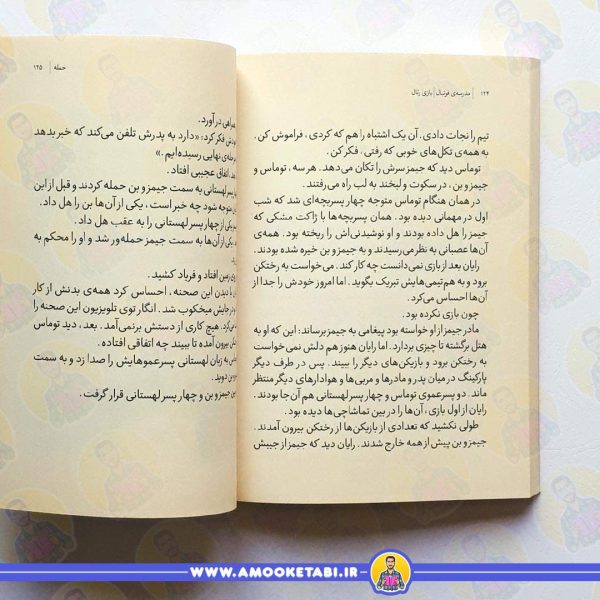 ۱۲۴ | مدرسه‌ی فوتبال | بازی رئال
تیم را نجات دادی. آن یک اشتباه را هم که کردی، فراموش کن.
به همه‌ی تکل‌های خوبی که رفتی، فکر کن.
توماس دید که جیمز سرش را تکان می‌دهد. هر سه، توماس و
جیمز و بن، در سکوت و لبخند به لب راه می‌رفتند.
در همان هنگام توماس متوجه چهار پسربچه‌ای شد که شب
اول در مهمانی دیده بود. همان پسربچه‌ها با ژاکت مشکی که
جیمز را هل داده بودند و او نوشیدنی‌اش را ریخته بود. همه‌ی
آن‌ها عصبانی به نظر می‌رسیدند و به جیمز و بن خیره شده بودند.
رایان بعد از بازی نمی‌دانست چه کار کند. می‌خواست به رختکن
برود و به هم‌تیمی‌هایش تبریک بگوید. اما امروز خودش را جدا از
آن‌ها احساس می‌کرد.
چون بازی نکرده بود.
مادر جیمز از او خواسته بود پیغامی به جیمز برساند: این که او به
هتل برگشته تا چیزی بردارد. اما رایان هنوز هم دلش نمی‌خواست
به رختکن برود و بازیکن‌های دیگر را ببیند. پس در طرف دیگر
پارکینگ در میان پدر و مادرها و مربی‌ها و هوادارهای دیگر منتظر
ماند. دو پسرعموی توماس و چهار پسر لهستانی هم آن‌جا بودند.
رایان از اول بازی، آن‌ها را در بین تماشاچی‌ها دیده بود.
طولی نکشید که تعدادی از بازیکن‌ها از رختکن بیرون آمدند.
جیمز و بن پیش از همه خارج شدند. رایان دید که جیمز از جیبش
حمله | ۱۲۵
در آورد.
فکر کرد: «دارد به پدرش تلفن می‌کند که خبر بدهد
نهایی رسیده‌ایم.»
اتفاق عجیبی افتاد.
پسر لهستانی به سمت جیمز و بن حمله کردند و قبل از این
متوجه شود چه خبر است، یکی از آن‌ها بن را هل داد.
یکی از پسر لهستانی‌ها او را به عقب هل داد.
از آن‌ها به سمت جیمز حمله‌ور شد و او را محکم به
زمین افتاد و فریاد کشید.
با دیدن این صحنه، احساس کرد همه‌ی بدنش از کار
در جایش میخکوب شد. انگار توی تلویزیون این صحنه را
می‌کرد. هیچ کاری از دستش برنمی‌آمد. بعد، دید توماس
بیرون آمده تا ببیند چه اتفاقی افتاده.
به زبان لهستانی پسرعموهایش را صدا زد و به سمت
دوید.
جیمز و بن و چهار پسر لهستانی قرار گرفت.
WWW.AMOOKETABI.IR